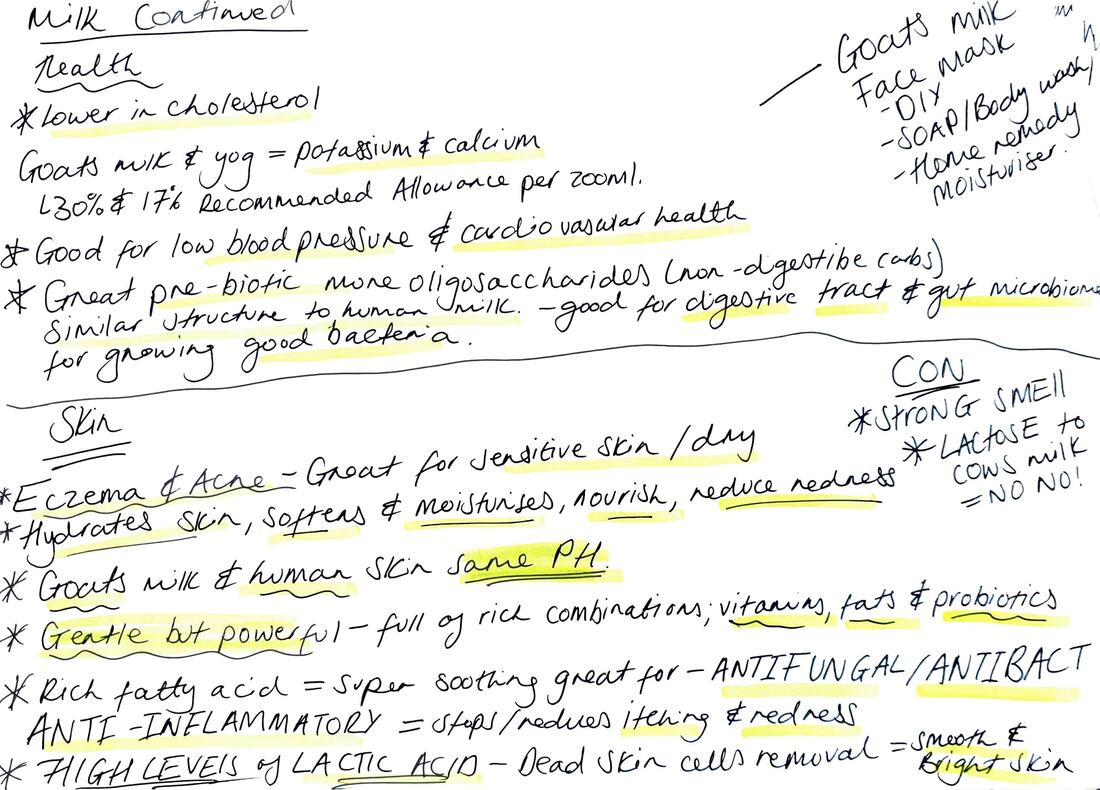 Milk Continued
Health
*Lower in cholesterol
Goats milk & yog = potassium & calcium
↳30% & 17% Recommended Allowance per 200ml.
* Good for low blood pressure & cardiovasular health
* Great pre-biotic more oligosaccharides (non-digestibe carbs)
Similar structure to human milk. - good for digestive tract & gut microbiome
for growing good bacteria.
Goats milk
Face mask
-DIY
-SOAP/Body wash/
-Home remedy
moisturiser.
Skin
*Eczema & Acne = Great for sensitive skin / dry
*Hydrates skin, softens & moisturises, nourish, reduce redness
* Goats milk & human skin same PH.
* Gentle but powerful - full of rich combinations; vitamins, fats & probiotics
* Rich fatty acid = super soothing great for - ANTIFUNGAL/ANTIBACT
ANTI-INFLAMMATORY = stops/reduces itching & redness
* HIGH LEVELS of LACTIC ACID - Dead skin cells removal = smooth &
Bright skin
CON
*STRONG SMEll
* LACTOSE to
COWS milk
= NO NO!